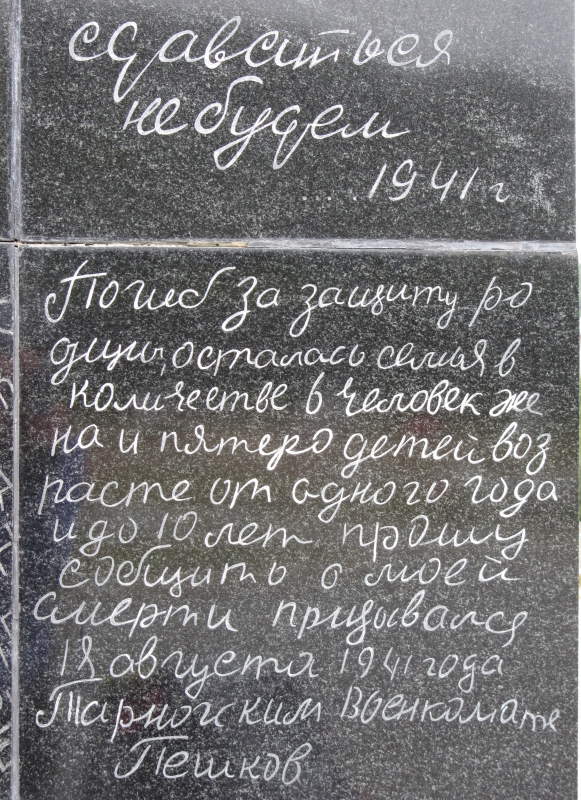 сдаваться
не будем
.. ..1941 г
Погиб за защиту ро
дины, осталась семья в
количестве 6 человек же
на и пятеро детей воз
расте от одного года
и до 10 лет прошу
сообщить о моей
смерти призывался
18 августа 1941 года
Тарногским Военкомате
Пешков